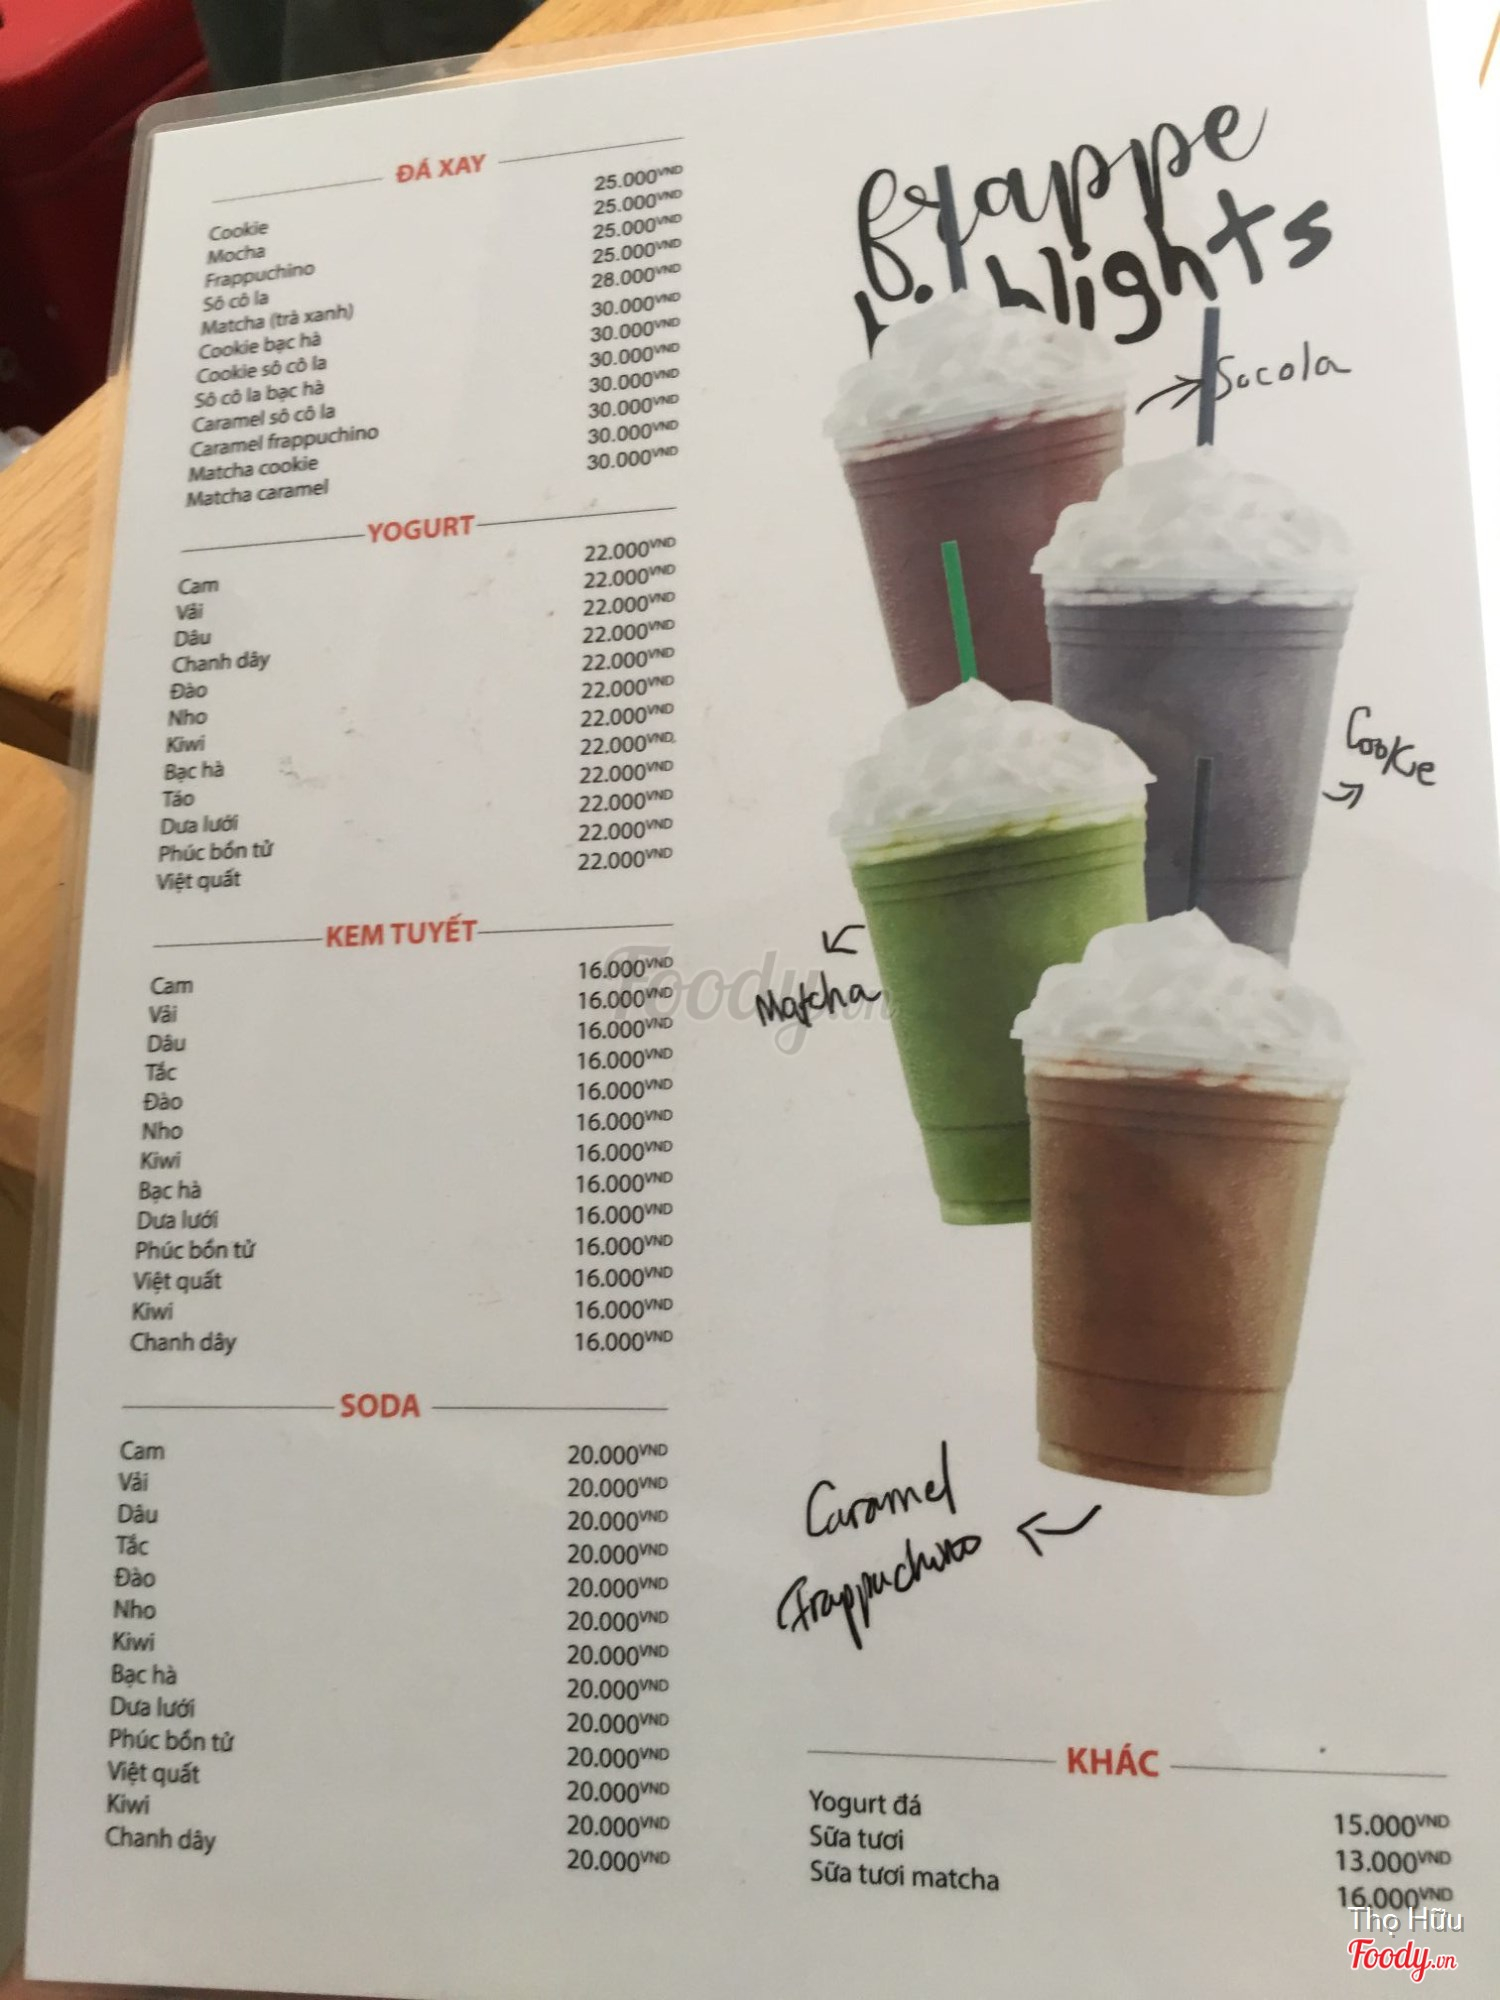 ĐÁ XAY
Cookie 25.000VND
Mocha 25.000VND
Frappuchino 25.000VND
Sô cô la 25.000VND
Matcha (trà xanh) 28.000VND
Cookie bạc hà 30.000VND
Cookie sô cô la 30.000VND
Sô cô la bạc hà 30.000VND
Caramel sô cô la 30.000VND
Caramel frappuchino 30.000VND
Matcha cookie 30.000VND
Matcha caramel 30.000VND
YOGURT
Cam 22.000VND
Vải 22.000VND
Dâu 22.000VND
Chanh dây 22.000VND
Đào 22.000VND
Nho 22.000VND
Kiwi 22.000VND
Bạc hà 22.000VND
Táo 22.000VND
Dưa lưới 22.000VND
Phúc bồn tử 22.000VND
Việt quất 22.000VND
KEM TUYẾT
Cam 16.000VND
Vải 16.000VND
Dâu 16.000VND
Tắc 16.000VND
Đào 16.000VND
Nho 16.000VND
Kiwi 16.000VND
Bạc hà 16.000VND
Dưa lưới 16.000VND
Phúc bồn tử 16.000VND
Việt quất 16.000VND
Kiwi 16.000VND
Chanh dây 16.000VND
SODA
Cam 20.000VND
Vải 20.000VND
Dâu 20.000VND
Tắc 20.000VND
Đào 20.000VND
Nho 20.000VND
Kiwi 20.000VND
Bạc hà 20.000VND
Dưa lưới 20.000VND
Phúc bồn tử 20.000VND
Việt quất 20.000VND
Kiwi 20.000VND
Chanh dây 20.000VND
frappe
highlights
Socola
Cookie
Matcha
Caramel
Frappuchino
KHÁC
Yogurt đá 15.000VND
Sữa tươi 13.000VND
Sữa tươi matcha 16.000VND
Foody.vn
Thọ Hữu
Foody.vn